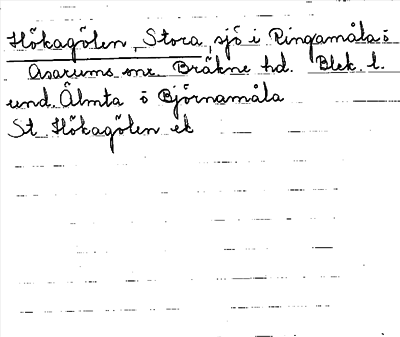 Hökagölen, Stora, sjö i Ringamåla ö
Asarums snr Bräkne hd. Blek. l.
und. Älmta ö Björnamåla
St Hökagölen ek